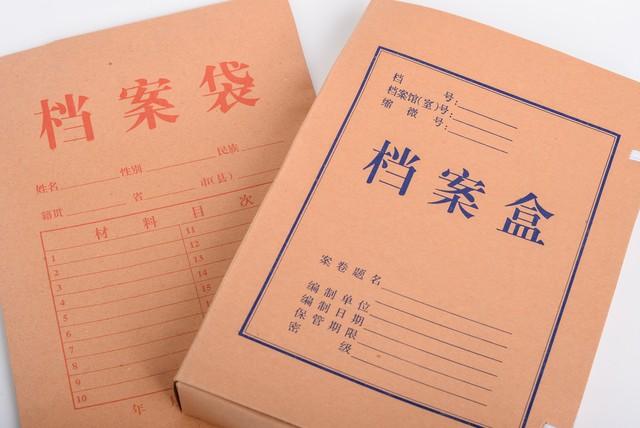 档案袋
姓名 性别 民族
籍贯 省 市(县)
材料目次
1 11
2 12
3 13
4 14
5 15
6
7
8
9
10
年
档 号:
档案馆(室)号:
缩 微 号:
档案盒
案卷题名
编制单位
编制日期
保管期限
密 级